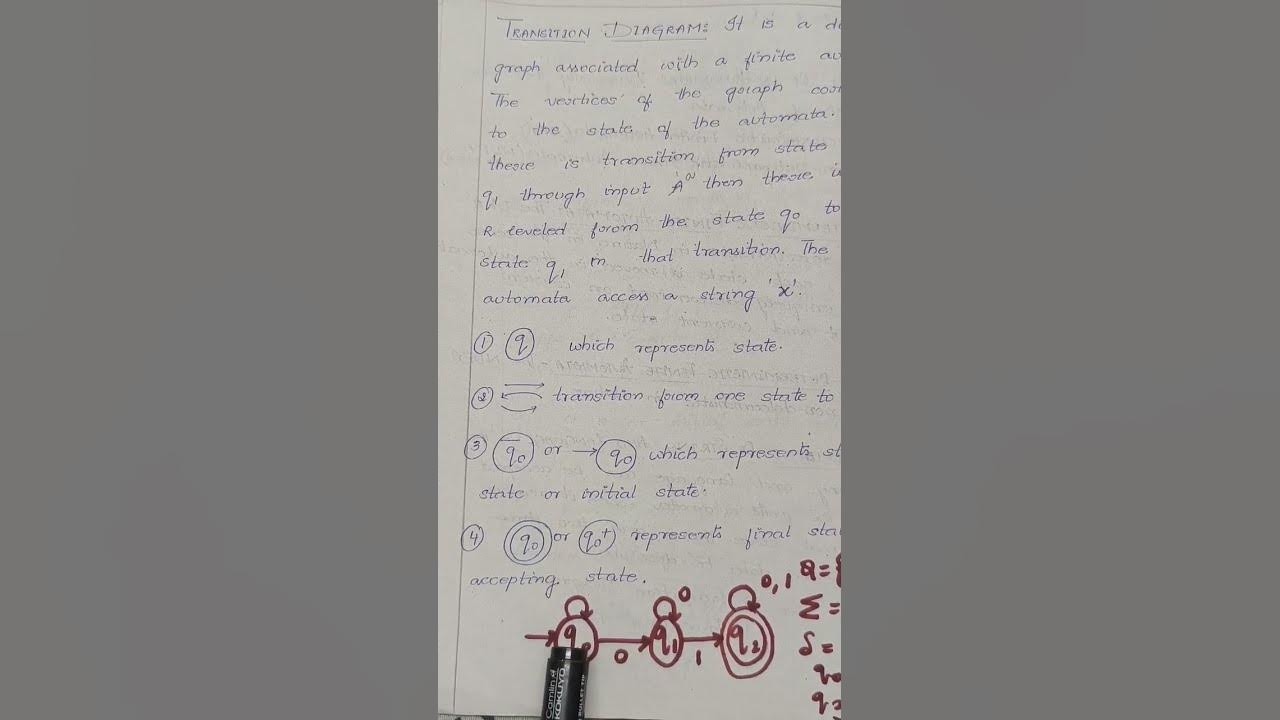 TRANSITION DIAGRAM: It is a
graph associated with a finite
The veortices of the goraph
to the state of the automata.
theore is transition from state
q1 through input 'A' then theore
R leveled forom the state q0 to
state q1 in that transition. The
automata access a string 'x'.
① q which represents state.
② transition forom one state to
③ q0 or → q0 which represents
state or initial state.
④ q0 or q0+ represents final
accepting state.
0 0,1 Q={
Σ =
q q1 q2 δ =
0 1 q0
Camlin
KOKUYO
BULLET TIP